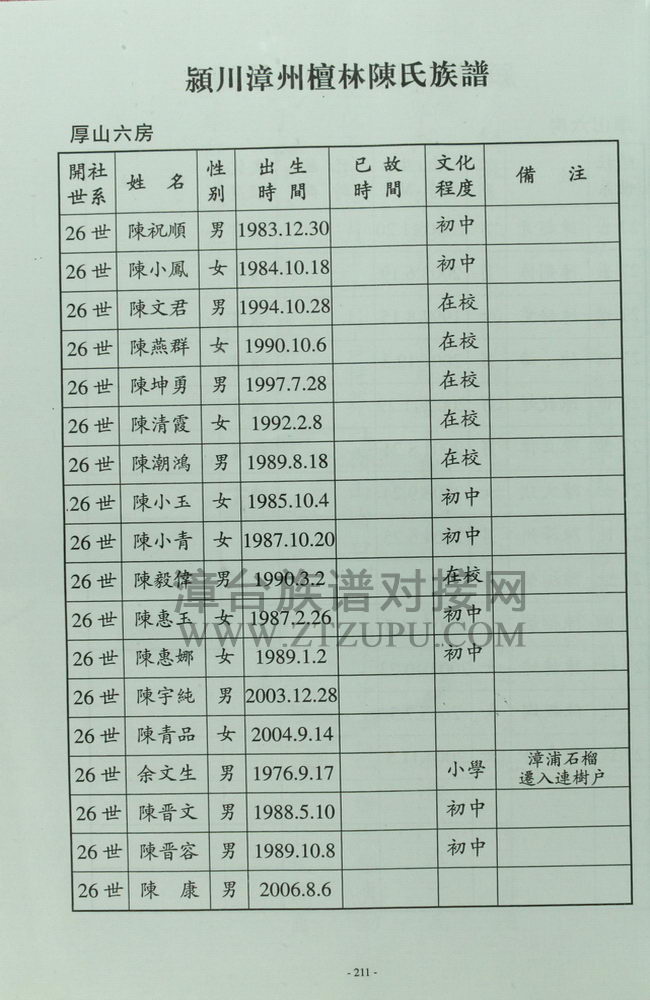 潁川漳州檀林陳氏族譜
厚山六房
開社世系 姓名 性别 出生時間 已故時間 文化程度 備注
26世 陳祝順 男 1983.12.30 初中
26世 陳小鳳 女 1984.10.18 初中
26世 陳文君 男 1994.10.28 在校
26世 陳燕群 女 1990.10.6 在校
26世 陳坤勇 男 1997.7.28 在校
26世 陳清霞 女 1992.2.8 在校
26世 陳潮鴻 男 1989.8.18 在校
26世 陳小玉 女 1985.10.4 初中
26世 陳小青 女 1987.10.20 初中
26世 陳毅偉 男 1990.3.2 在校
漳台族谱对接网
26世 陳惠玉 女 1987.2.26 初中
WWW.ZTZUPU.COM
26世 陳惠娜 女 1989.1.2 初中
26世 陳宇純 男 2003.12.28
26世 陳青品 女 2004.9.14
26世 余文生 男 1976.9.17 小學 漳浦石榴遷入連樹户
26世 陳晋文 男 1988.5.10 初中
26世 陳晋容 男 1989.10.8 初中
26世 陳康 男 2006.8.6
- 211 -